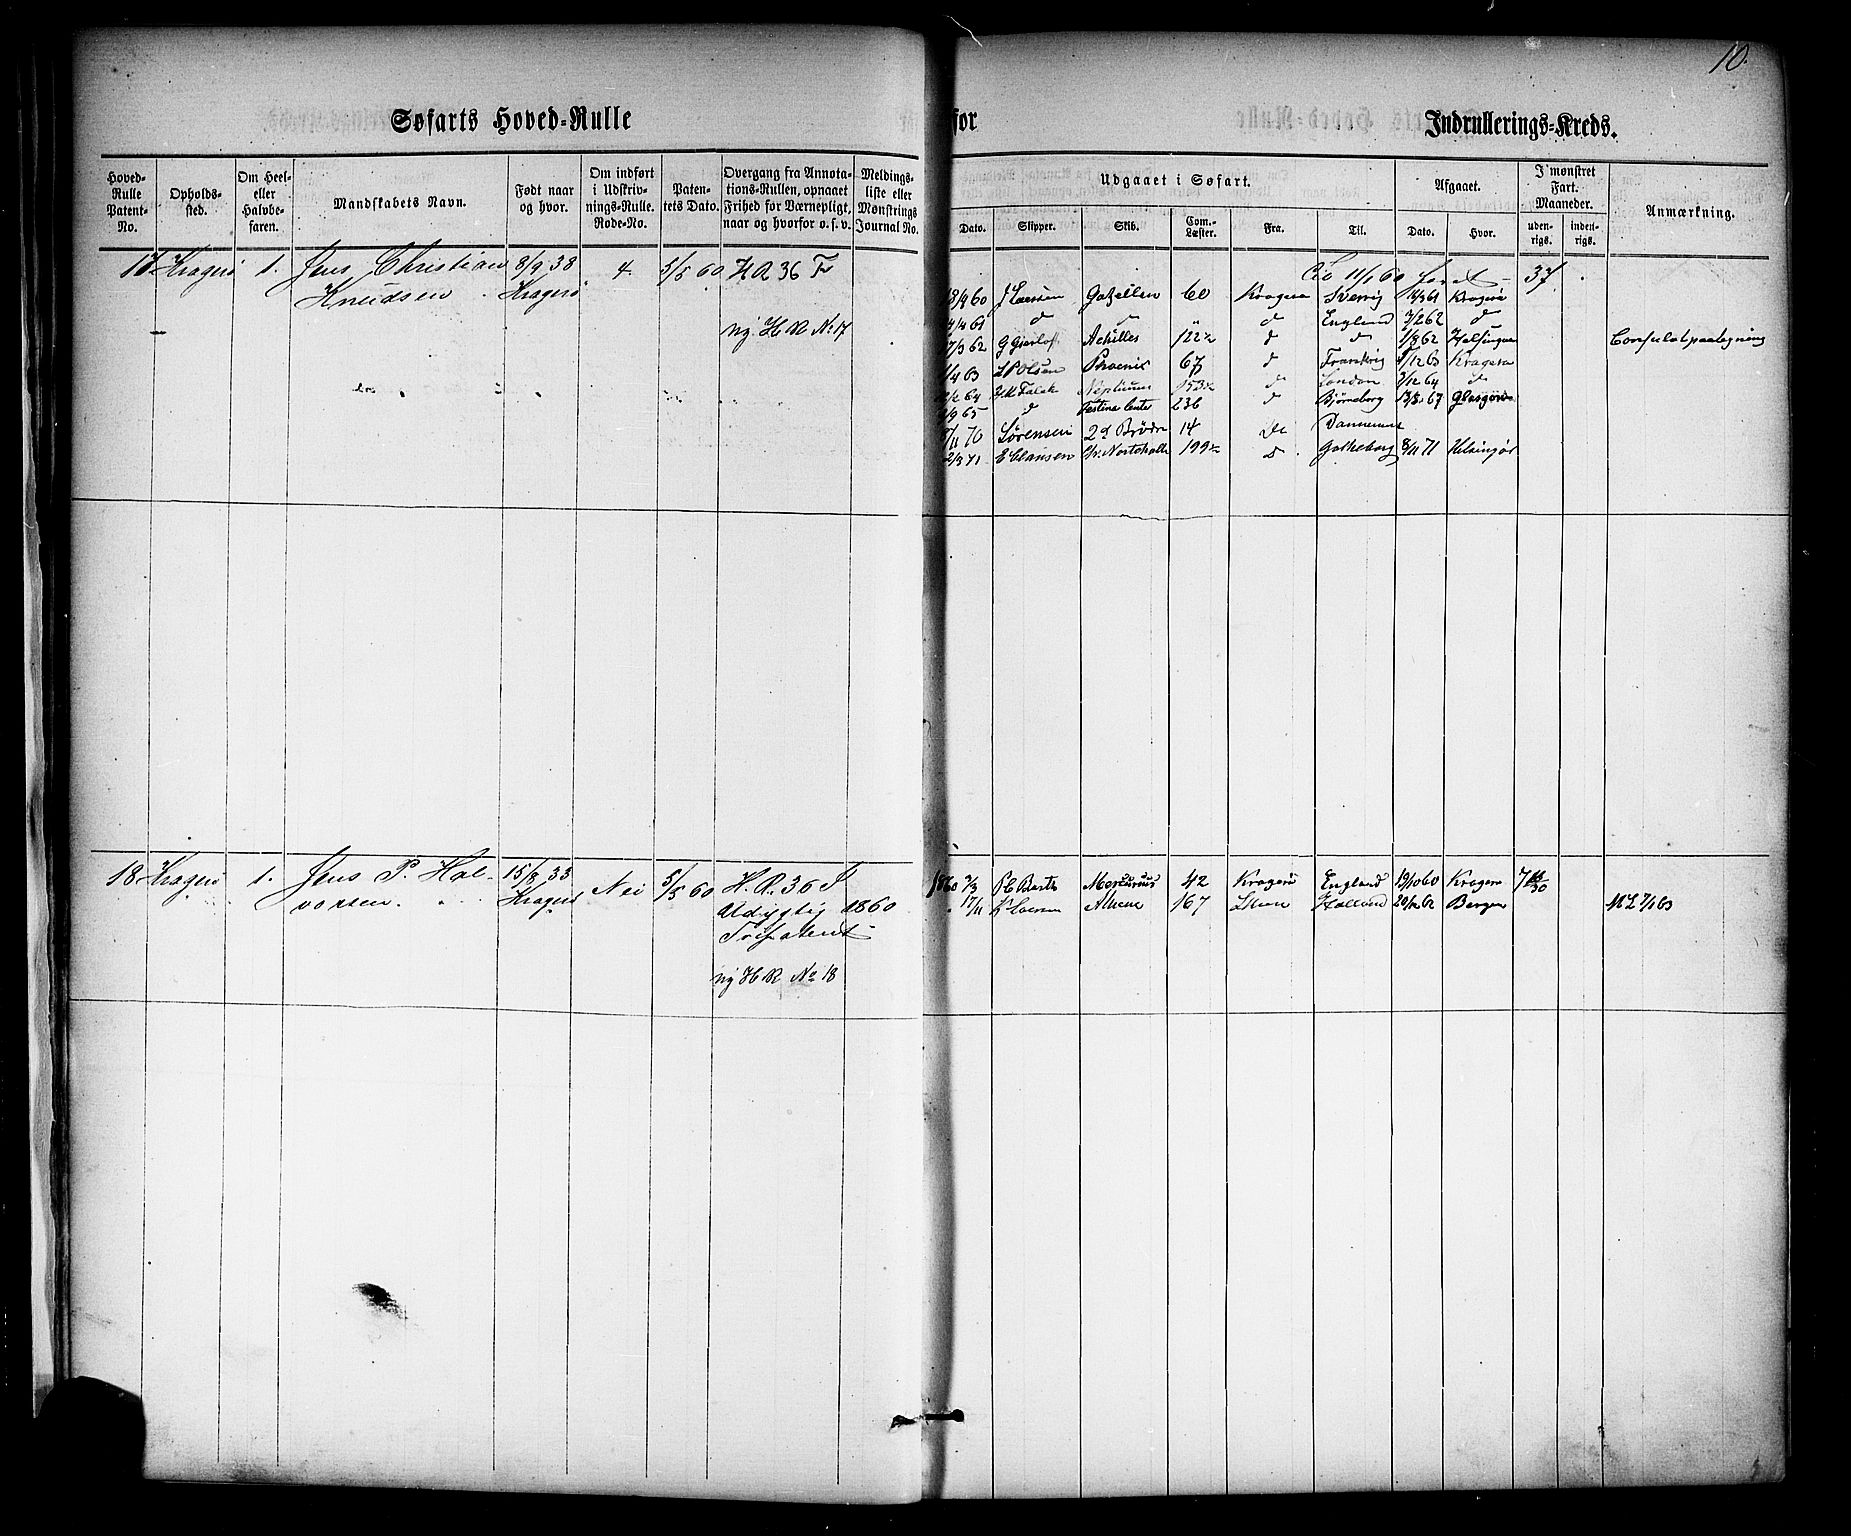 10.
Søfarts Hoved-Rulle for Indrullerings-Kreds.
Hoved-Rulle Patent-No. Opholds-sted. Om Heel- eller Halvbe-faren. Mandskabets Navn. Født naar og hvor. Om indført i Udskriv-nings-Rulle. Rode-No. Paten-tets Dato. Overgang fra Annota-tions-Rullen, opnaaet Frihed for Værnepligt, naar og hvorfor o. s. v. Meldings-liste eller Mønstrings Journal No.
Udgaaet i Søfart. Afgaaet. I mønstret Fart. Maaneder. Anmærkning.
Dato. Skipper. Skib. Com.-Læster. Fra. Til. Dato. Hvor. uden-rigs. inden-rigs.
17 Kragerø 1. Jens Christian 8/9 38 4. 5/5 60 H R 36 F
Knudsen Kragerø
ny H R No 17
11/1 60 37
18/9 60 J Larsen Gazellen 60 Kragerø Sverrig Kragerø
4/4 61 d d " d England 7/2 62 d
7/3 62 Achilles 122 d d 1/9 62 Helsingør Consulatpaategning
1/4 63 L Olsen Phoenix 67 d Frankrig 12 63 Kragerø
2/2 64 Falck Neptunus 153 d London 3/12 64 d
9 65 d Festina lente 236 d Bjørneborg 13/8 67 Glasgow
/11 70 Sørensen 2 d Brødre 14 De Danmark
2/3 71 E Clausen Chr. 199 d. Gotheborg 8/11 71 Helsingør
18 Kragerø 1. Jens P. Hal- 15/8 33 Nei 5/5 60 H. R. 36 F
vorsen. Kragerø
Udygtig 1860
ny H R No 18
1860 5/3 P C Barth Mercurius 42 Kragerø England 19/10 60 Kragerø 7
17/11 Larsen 167 Skien Holland 20/12 62 Bergen M L 7/1 63